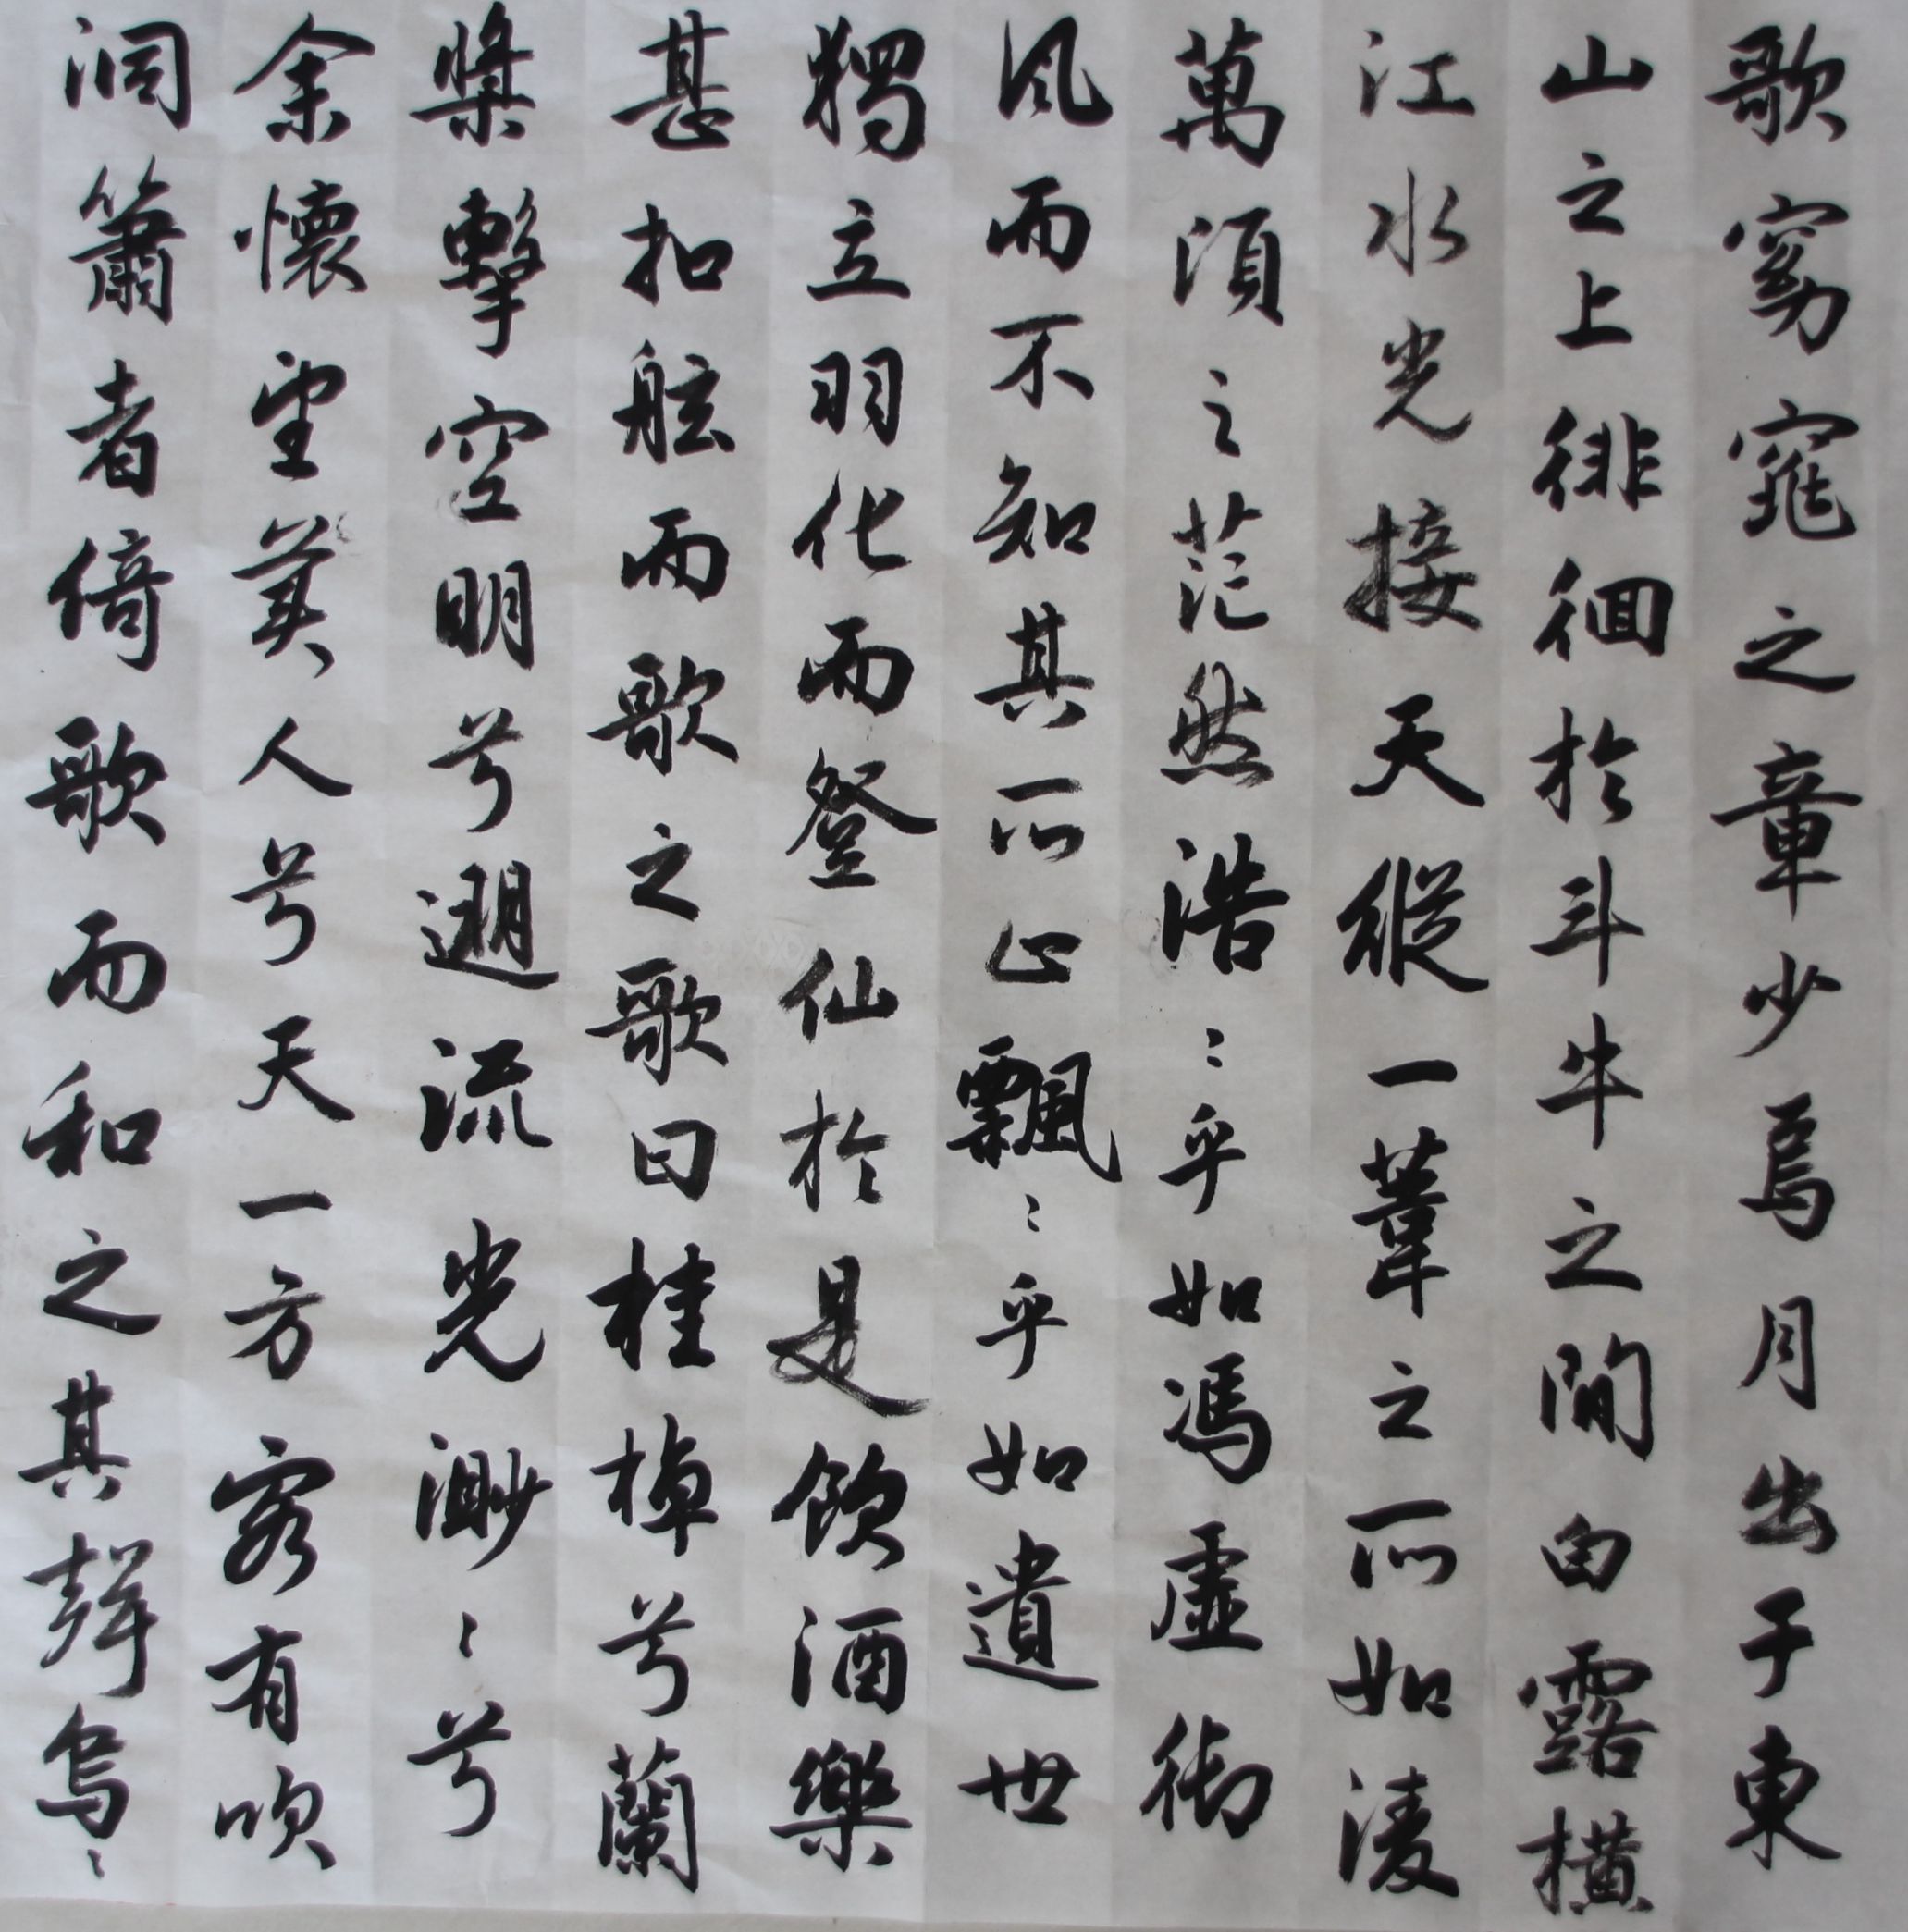 歌窈窕之章少焉月出于東
山之上徘徊於斗牛之間白露橫
江水光接天縱一葦之所如淩
萬頃之茫然浩〻乎如馮虛御
風而不知其所止飄〻乎如遺世
獨立羽化而登仙於是飲酒樂
甚扣舷而歌之歌曰桂棹兮蘭
槳擊空明兮遡流光渺〻兮
余懷望美人兮天一方客有吹
洞簫者倚歌而和之其聲烏〻